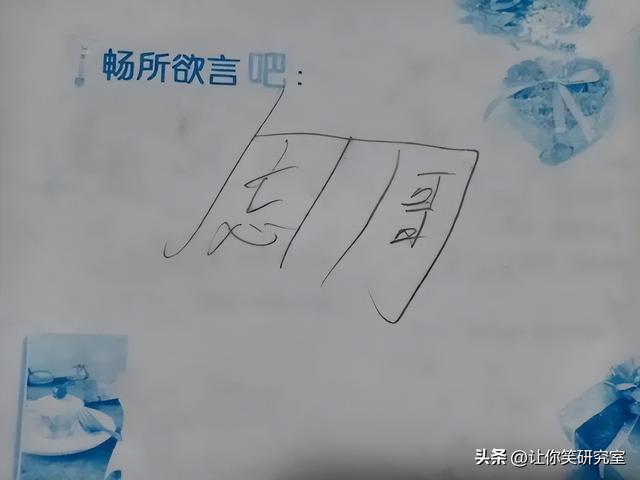 畅所欲言吧：
勿忘哥
头条 @让你笑研究室